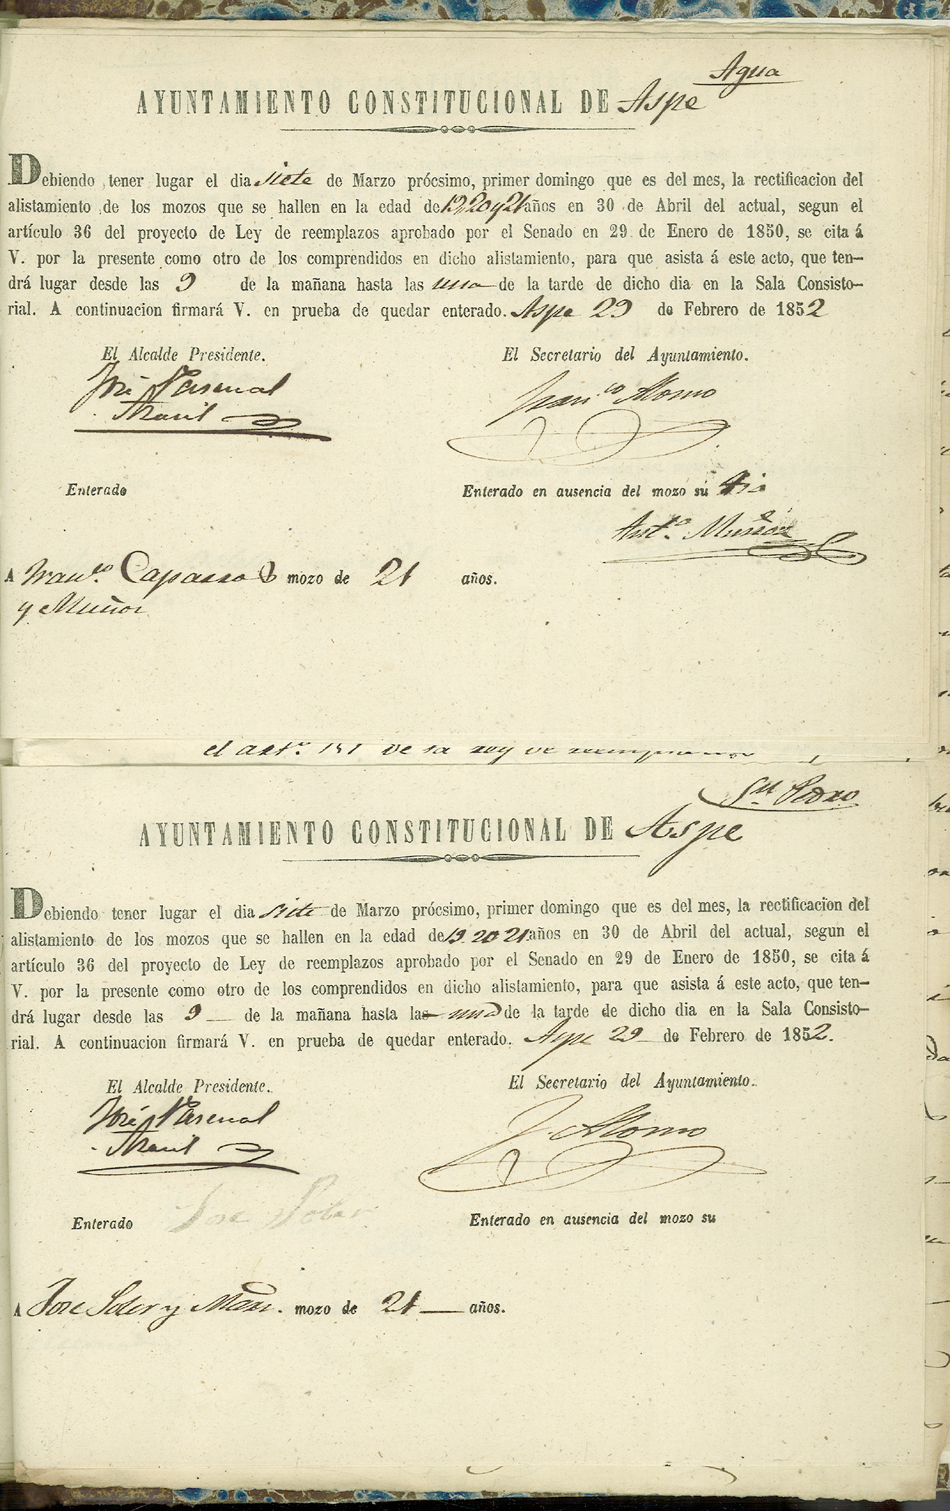 Agua
AYUNTAMIENTO CONSTITUCIONAL DE Aspe
Debiendo tener lugar el dia siete de Marzo prócsimo, primer domingo que es del mes, la rectificacion del
alistamiento de los mozos que se hallen en la edad de 19 20 y 21 años en 30 de Abril del actual, segun el
artículo 36 del proyecto de Ley de reemplazos aprobado por el Senado en 29 de Enero de 1850, se cita á
V. por la presente como otro de los comprendidos en dicho alistamiento, para que asista á este acto, que ten-
drá lugar desde las 9 de la mañana hasta las una de la tarde de dicho dia en la Sala Consisto-
rial. A continuacion firmará V. en prueba de quedar enterado. Aspe 29 de Febrero de 1852
El Alcalde Presidente. El Secretario del Ayuntamiento.
José Pascual Fran.co Alonso
Enterado Enterado en ausencia del mozo su tio
Ant.o Muñoz
A Fran.co Caparros mozo de 21 años.
y Muñoz
el art.o 131 de la ley de reemplazos
S.n Pedro
AYUNTAMIENTO CONSTITUCIONAL DE Aspe
Debiendo tener lugar el dia siete de Marzo prócsimo, primer domingo que es del mes, la rectificacion del
alistamiento de los mozos que se hallen en la edad de 19 20 21 años en 30 de Abril del actual, segun el
artículo 36 del proyecto de Ley de reemplazos aprobado por el Senado en 29 de Enero de 1850, se cita á
V. por la presente como otro de los comprendidos en dicho alistamiento, para que asista á este acto, que ten-
drá lugar desde las 9 de la mañana hasta las una de la tarde de dicho dia en la Sala Consisto-
rial. A continuacion firmará V. en prueba de quedar enterado. Aspe 29 de Febrero de 1852.
El Alcalde Presidente. El Secretario del Ayuntamiento.
José Pascual F. Alonso
Enterado Jose Soler Enterado en ausencia del mozo su
A Jose Soler y mozo de 21 años.